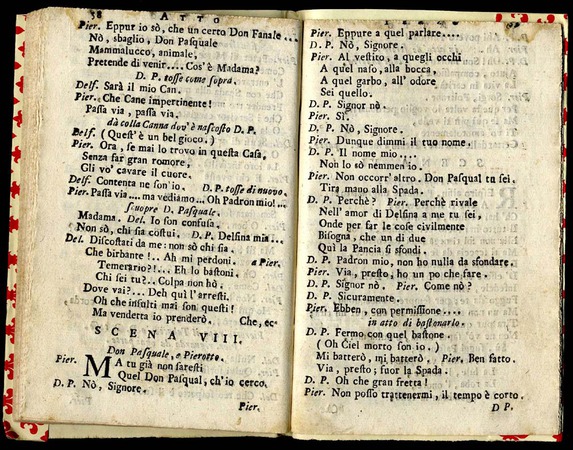 38 ATTO
Pier. Eppur io sò, che un certo Don Fanale...
Nò, sbaglio, Don Pasquale
Mammalucco, animale,
Pretende di venir.... Cos'è Madama?
D. P. tosse come sopra.
Delf. Sarà il mio Can.
Pier. Che Cane impertinente!
Passa via, passa via.
dà colla Canna dov'è nascosto D. P.
Delf. (Quest'è un bel gioco.)
Pier. Ora, se mai lo trovo in questa Casa,
Senza far gran romore,
Gli vo' cavare il cuore.
Delf. Contenta ne son'io. D. P. tosse di nuovo.
Pier. Passa via.... ma vediamo... Oh Padron mio!...
scuopre D. Pasquale.
Madama. Del. Io son confusa.
Non sò, chi sia costui. D. P. Delfina mia...
Del. Discostati da me: non sò chi sia.
Che birbante!... Ah mi perdoni. a Pier.
Temerario?!... Eh lo bastoni.
Chi sei tu?... Colpa non hò.
Dove vai?... Deh quì l'arresti.
Oh che insulti mai son questi!
Ma vendetta io prenderò. Che, ec.
SCENA VIII.
Don Pasquale, e Pierotto.
Pier. MA tu già non saresti
Quel Don Pasqual, ch'io cerco.
D. P. Nò, Signore.
Pier.
Pier. Eppure a quel parlare....
D. P. Nò, Signore.
Pier. Al vestito, a quegli occhi
A quel naso, alla bocca,
A quel garbo, all' odore
Sei quello.
D. P. Signor nò.
Pier. Sì.
D. P. Nò, Signore.
Pier. Dunque dimmi il tuo nome.
D. P. Il nome mio....
Non lo sò nemmen io.
Pier. Non occorr' altro. Don Pasqual tu sei.
Tira mano alla Spada.
D. P. Perchè? Pier. Perchè rivale
Nell' amor di Delfina a me tu sei,
Onde per far le cose civilmente
Bisogna, che un di due
Quì la Pancia si sfondi.
D. P. Padron mio, non hò nulla da sfondare.
Pier. Via, presto, ho un po che fare.
D. P. Signor nò. Pier. Come nò?
D. P. Sicuramente.
Pier. Ebben, con permissione....
in atto di bastonarlo.
D. P. Fermo con quel bastone.
(Oh Ciel morto son io.)
Mi batterò, mi batterò. Pier. Ben fatto.
Via, presto; fuor la Spada.
D. P. Oh che gran fretta!
Pier. Non posso trattenermi, il tempo è corto.
D P.